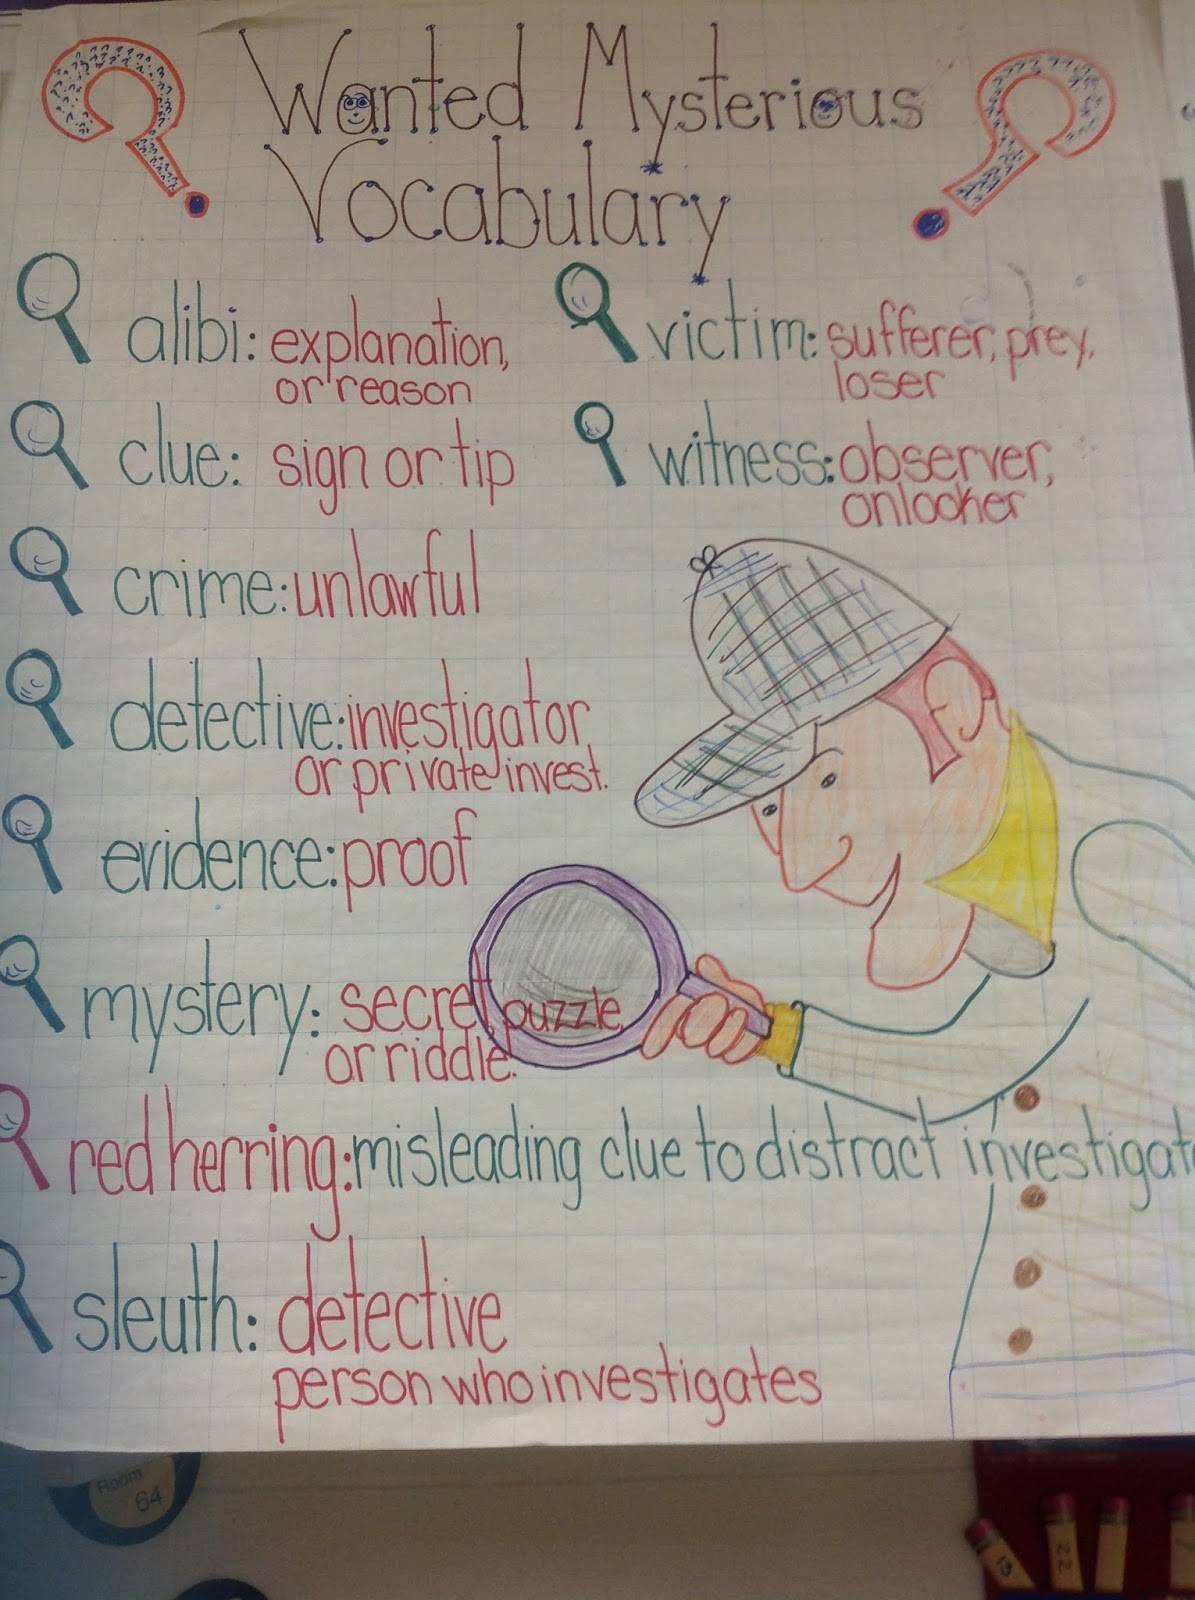 Wanted Mysterious
Vocabulary
alibi: explanation,
or reason
clue: sign or tip
crime: unlawful
detective: investigator
or private invest.
evidence: proof
mystery: secret, puzzle,
or riddle.
red herring: misleading clue to distract investigat
sleuth: detective
person who investigates
victim: sufferer, prey,
loser
witness: observer,
onlooker
Room
64
22